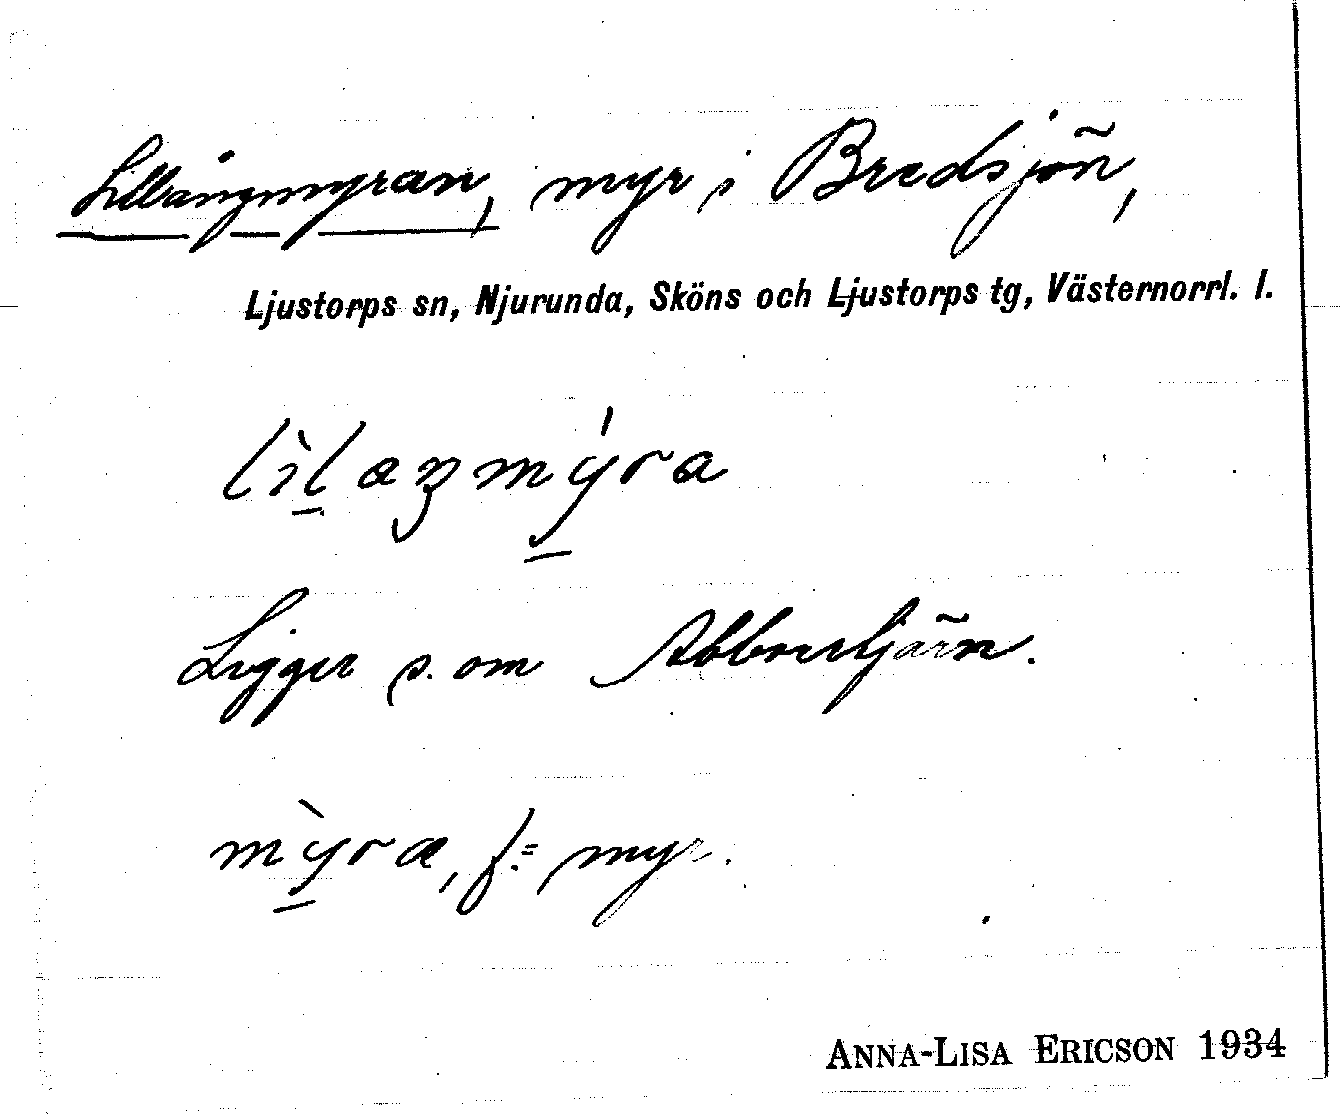 Lillängmyran, myr i Bredsjön,
Ljustorps sn, Njurunda, Sköns och Ljustorps tg, Västernorrl. l.
Ligger s. om Abborrtjärn.
myra, f. = myr.
ANNA-LISA ERICSON 1934